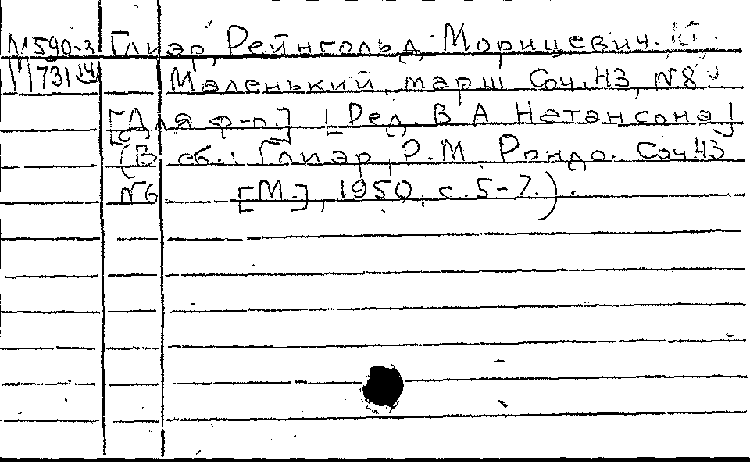 М590-3 Глиэр, Рейнгольд Морицевич.
М731 14 Маленький марш Соч.43, №8
[Для ф-п.] [Ред. В А Натансона]
(В сб.: Глиэр, Р.М. Рондо. Соч.43
№6 [М.], 1950, с. 5-7.).